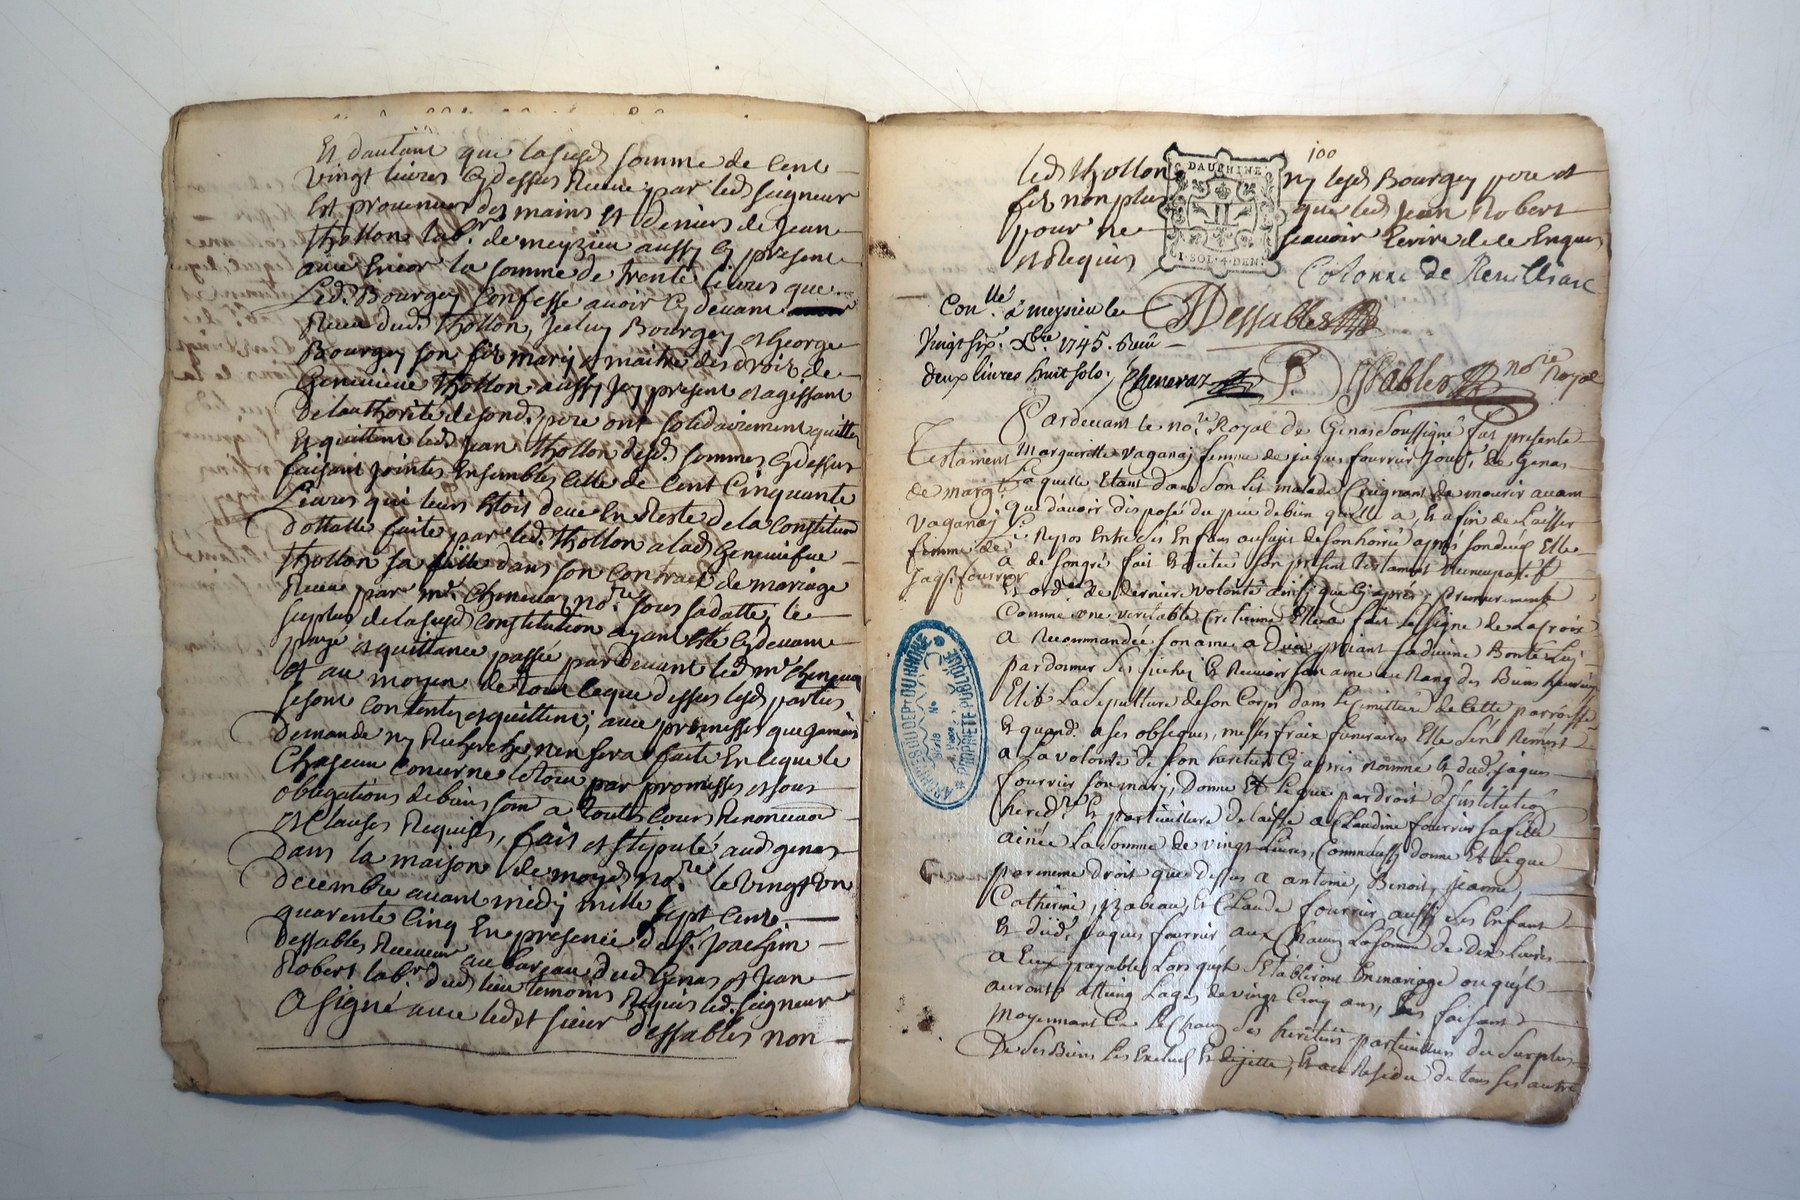 Et dautant que lasusd somme de cent
vingt livres cydessus Receue par led seigneur
Est provenue des mains et deniers de Jean
thollon labr. de meyzieu aussy cy present
avec Encor la somme de trente livres que
Led. Bourgey Confesse avoir cydevant
Receu dud. thollon, Jceluy Bourgey et george
Bourgey son fils mary et maitre des droits de
Genevieve thollon aussy Jcy present et agissant
de lauthorité desond. pere ont solidairement quitté
Et quittent led. Jean thollon desd. sommes cydessus
faisant jointes Ensembles celle de cent cinquante
Livres qui leurs etois deüe En Reste de la Constitution
dottalle faite par led. thollon a lad Genevieve
thollon sa fille dans son contract de mariage
Receu par me. Cheneraz nore. sous sadatte, le
surplus delasusd constitution ayant este cydevant
payé et quittancé passée pardevant led me Cheneraz
et au moyen de tout ceque dessus lesd parties
se sont contentes et quittent, avec promesses que jamais
Demande ny Recherche nen sera faite En ceque le
Chascun concerne le tout par promisses et sous
obligations de biens soum a toutes cours Renonciaon
et Clauses Requises, fait et stipulé aud genas
Dans la maison de moyd nore. le vingt un
decembre avant midy mille sept cent
quarente cinq En presence de sr. joachim
Dessables Receveur au bureau dud Genas et Jean
Robert labr. dud lieu temoins Requis led. seigneur
a signé avec ledt sieur dessables non
100
led thollon ny lesd Bourgey pere et
fils non plus que led jean Robert
pour ne scavoir Ecrire de ce Enquis
et Requis
Colonne de
DAUPHINE
1.SOL.4.DEN.
Conllé. a meysieu le
Dessables
Vingt six. Xbre 1745. Reçu
deux livres huit sols. Cheneraz
Dessables nore Royal
Pardevant le nore. Royal de Genas soussigné fut presente
Testament Margueritte vaganaj femme de jaques fourrier de Genas
de margte. Laquelle Etant dans son lit malade Craignant de mourir avant
vaganaj que davoir disposé du peu de bien quelle a, Et afin de Laisser
femme de Repos Entre ses Enfans au sujet de son hoirie après son decès Elle
Jaqs. fourrier a de son gré fait Et dicté son present testament nuncupatif
Et orde. de derniere volonté ainsy que cy apres, premierement
Comme une veritable Cretienne Elle a fait le signe de la Croix
a Recommandée son ame a Dieu, priant sa divine Bonté luj
pardonner ses pechés Et Recevoir son ame au Rang des Biens heureux
Elit La sepulture de son Corps dans le cimettiere de Cette parroisse
Et quand. a ses obseques, messes fraix funeraires Elle sen Remest
a La volonté de son heritier Cy apres nommé Et dud. jaques
fourrier son mary, Donne Et legue par droit djnstitution
heredre. Et particulliere delaisse a Claudine fourrier sa fille
ainée La somme de vingt Livres, Comme aussy donne Et legue
par meme droit que dessus a antoine, Benoit, jeanne,
Catherine, jzabeau, Et Claude fourrier aussy ses Enfant
Et dud. jaques fourrier aux Chacun La somme de dix Livres
a Eux payable Lors quils s'Etabliront En mariage ou quils
auront atteing Lage de vingt Cinq ans, Les faisant
Moyennant Ce Chacun ses heritiers particulliers du surplus
De ses Biens Les Exclud Et dejette, Et au Residu de tous ses autre
ARCHIVES DU DEPT DU RHONE
Série
No
Pièce
PROPRIÉTÉ PUBLIQUE